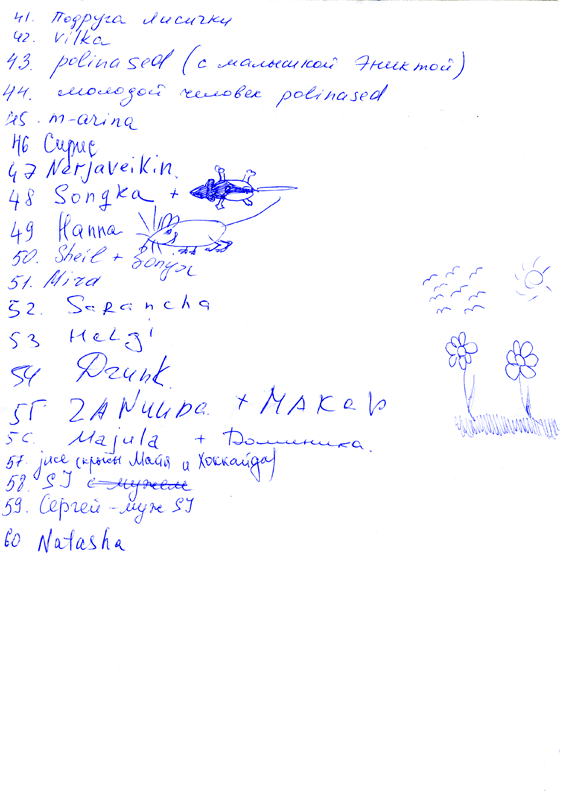 41. Подруга Лисички
42. vilka
43. polinased (с малышкой Эниктой)
44. молодой человек polinased
45. m-arina
46 Сирис
47 Nerjaveikin.
48 Songka +
49 Hanna
50. Sheil +
51. Mira
52. Sarancha
53 Helgi
54 Drunk.
55 ZANuuda + МАКАР
56. Majula + Доминика.
57. juce (крысы Майя и Хоккайдо)
58. SJ с мужем
59. Сергей - муж SJ
60 Natasha